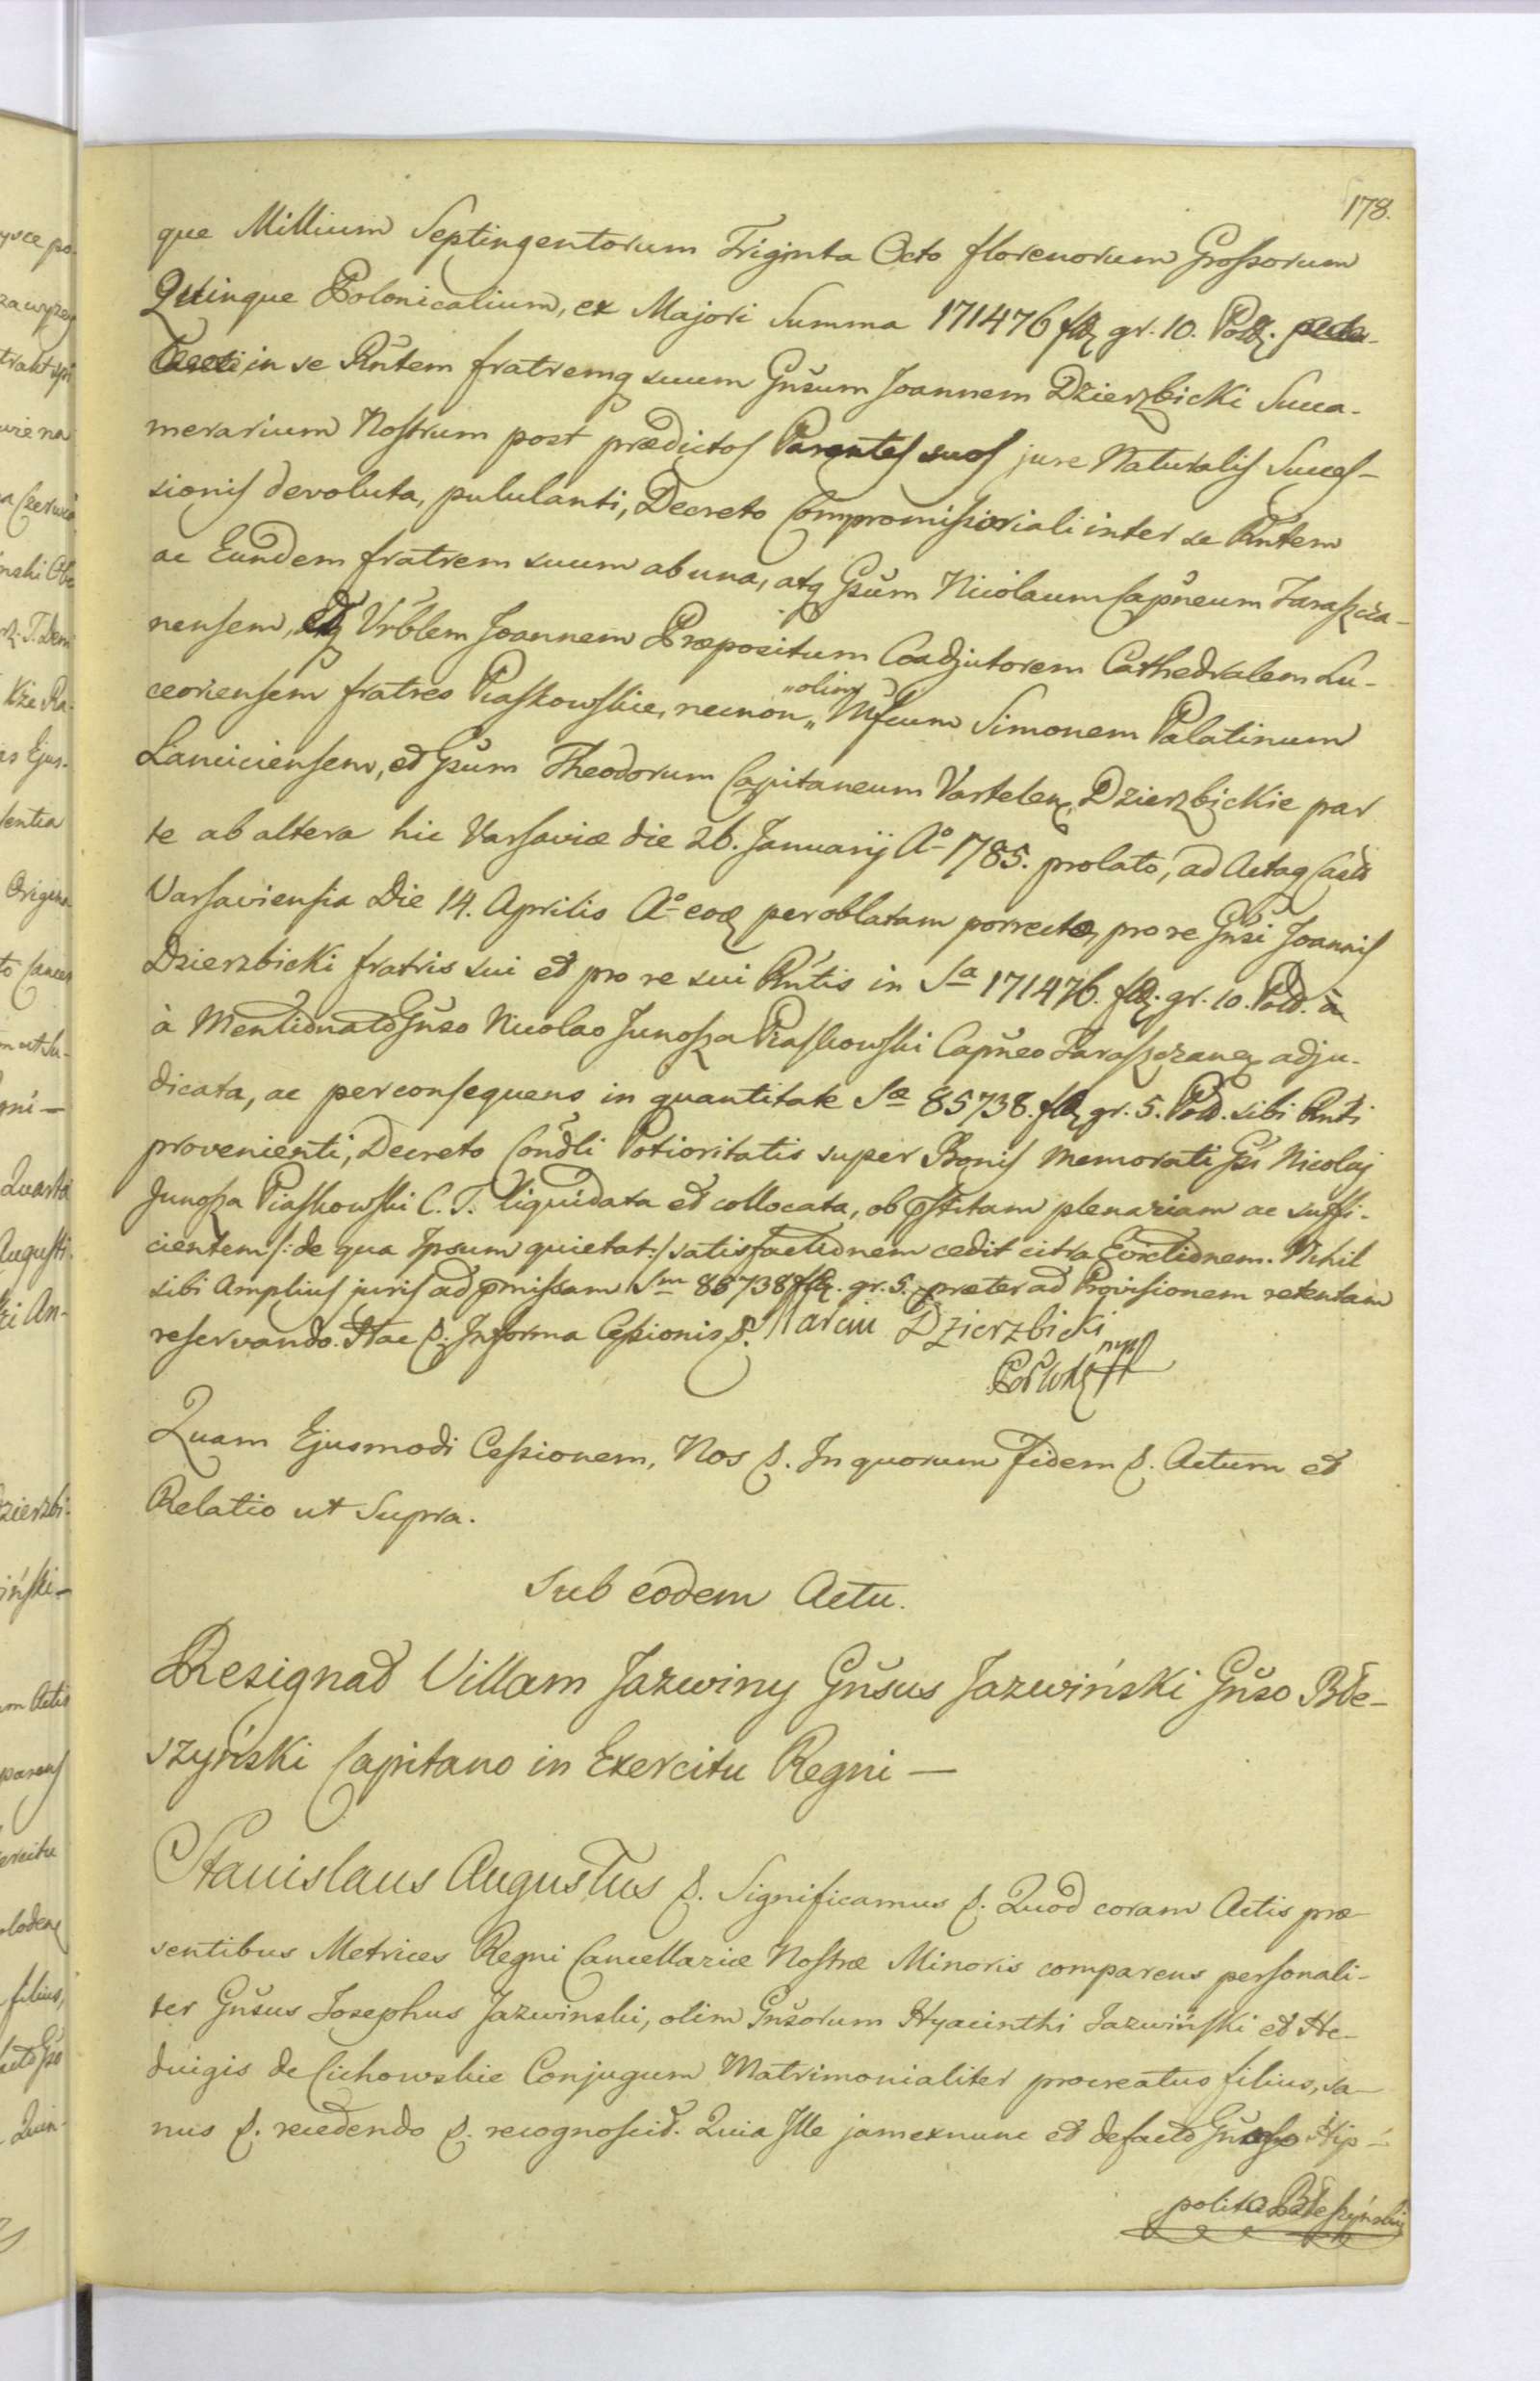 178.
que Millium Septingentorum Triginta Octo florenorum Grossorum
Quinque Polonicalium, ex Majori Summa 171476 flz gr. 10. Polz.
in se Rñtem fratremq suum Gñsum Joannem Dzierzbicki Succa-
merarium Nostrum post prædictos Parentes suos jure Naturalis Succes-
sionis devoluta, pululanti, Decreto Compromissoriali inter se Rñtem
ac Eundem fratrem suum ab una, atq Gsum Nicolaum Capñeum Taraszcza-
nensem, Vrblem Joannem Præpositum Coadjutorem Cathedralem Lu-
ceoriensem fratres Piaskowskie, necnon „olim„ Mfcum Simonem Palatinum
Lanciciensem, et Gsum Theodorum Capitaneum Vartelen, Dzierzbickie par
te ab altera hic Varsaviæ die 26. Januarij Aº 1785. prolato, ad Actaq Castr
Varsaviensia Die 14. Aprilis Aº eoq per oblatam porrecto, pro re Gñsi Joannis
Dzierzbicki fratris sui et pro re sui Rñtis in Sª 171476. flz. gr. 10. Pold. à
à Mentionato Gñso Nicolao Junosza Piaskowski Capñeo Taraszczaneñ adju-
dicata, ac per consequens in quantitate Sæ 85738. flz gr. 5. Pold. sibi Rñti
provenienti, Decreto Condli Potioritatis super Bonis Memorati Gsi Nicolaj
Junosza Piaskowski C. T. liquidata et collocata, ob pstitam plenariam ac suffi-
cientem /: de qua Ipsum quietat :/ satisfactionem cedit citra Evictionem. Nihil
sibi Amplius juris ad pmissam Sm 85738 flz. gr. 5. præter ad Provisionem retentam
reservando. Hac p. In forma Cessionis p. Marcin Dzierzbicki
mp
Quam Ejusmodi Cessionem, Nos p. In quorum Fidem p. Actum et
Relatio ut Supra.
Sub eodem Actu.
Resignat Villam Jazwiny Gñsus Jazwiński Gñso Błe-
szyński Capitano in Exercitu Regni —
Stanislaus Augustus p. Significamus p. Quod coram Actis præ-
sentibus Metrices Regni Cancellariæ Nostræ Minoris comparens personali-
ter Gñsus Josephus Jazwinski, olim Gñsorum Hyacinthi Jazwiński et He-
dvigis de Cichowskie Conjugum Matrimonialiter procreatus filius, sa-
nus p. recedendo p. recognoscit. Quia Ille jam ex nunc et de facto Gñso Hip-
polito Błeszyński